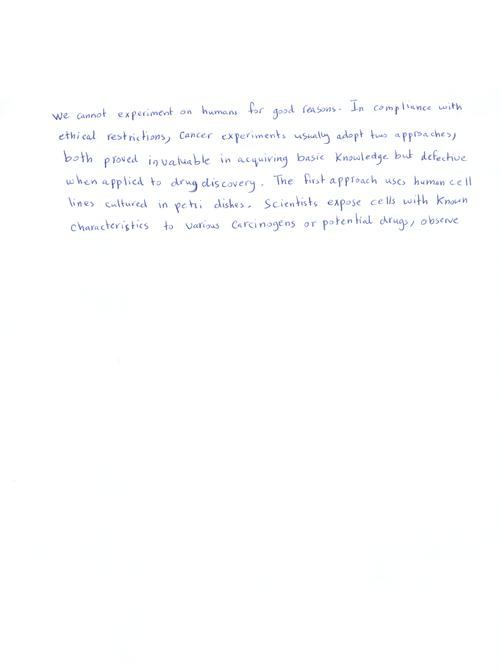 We cannot experiment on humans for good reasons. In compliance with
ethical restrictions, Cancer experiments usually adopt two approaches,
both proved invaluable in acquiring basic Knowledge but defective
when applied to drug discovery. The first approach uses human cell
lines cultured in petri dishes. Scientists expose cells with Known
characteristics to various Carcinogens or potential drugs, observe